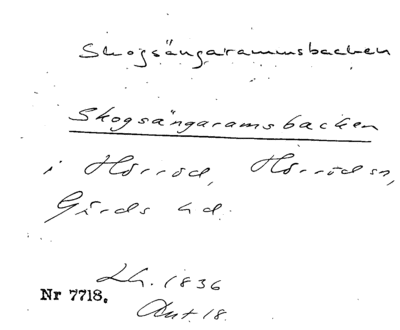 Skogsängarammsbacken
Skogsängaramsbacken
i Hörröd, Hörröds sn,
Gärds hd.
Lh. 1836
Nr 7718.
Akt. 18.